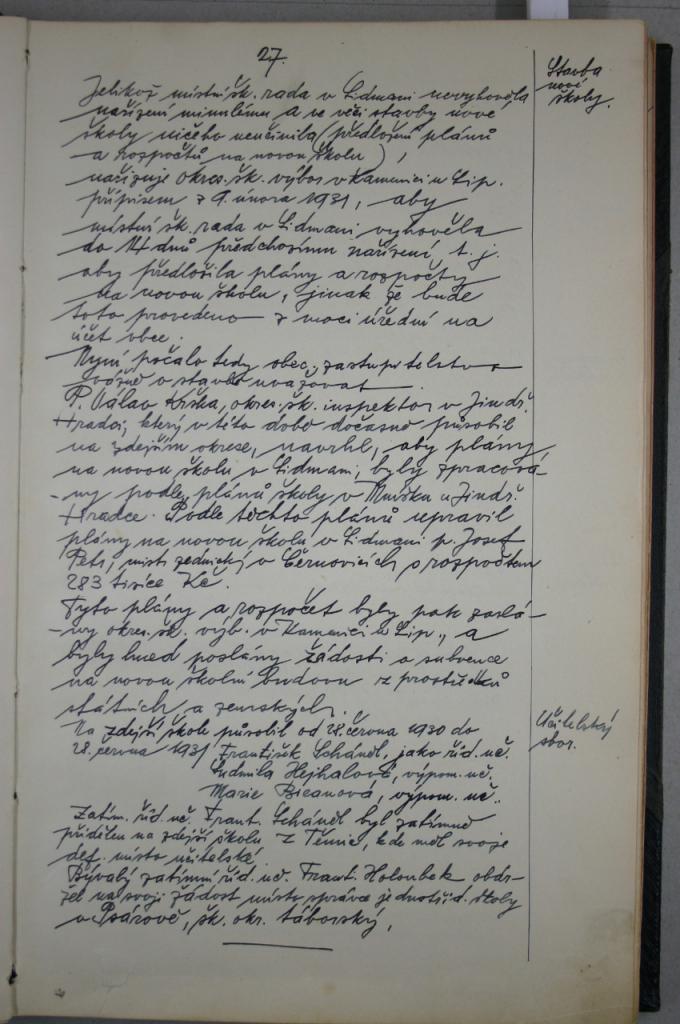 27.
Stavba
nové
školy.
Jelikož místní šk. rada v Lidmani nevyhověla
nařízení minulému a ve věci stavby nové
školy ničeho neučinila (předložení plánů
a rozpočtů na novou školu),
nařizuje okres. šk. výbor v Kamenici n Lip.
přípisem z 9. února 1931, aby
místní šk. rada v Lidmani vyhověla
do 14 dnů předchozímu nařízení, t. j.
aby předložila plány a rozpočty
na novou školu, jinak že bude
toto provedeno z moci úřední na
účet obce.
Nyní počalo tedy obec. zastupitelstvo
vážně o stavbě uvažovat.
P. Václav Krška, okres. šk. inspektor v Jindř.
Hradci, který v této době dočasně působil
na zdejším okrese, navrhl, aby plány
na novou školu v Lidmani, byly zpracová-
-ny podle plánů školy v u Jindř.
Hradce. Podle těchto plánů upravil
plány na novou školu v Lidmani p. Josef
Petr, mistr zednický v Černovicích s rozpočtem
283 tisíce Kč.
Tyto plány a rozpočet byly pak zaslá-
-ny okres. šk. výb. v Kamenici n Lip., a
byly hned poslány žádosti o subvence
na novou školní budovu z prostředků
státních a zemských.
Učitelský
sbor.
Na zdejší škole působil od 28. června 1930 do
28. června 1931 František Schándl, jako říd. uč.
Ludmila Hejhalová, výpom. uč.
Marie Bicanová, výpom. uč.
Zatím. říd. uč. Frant. Schándl byl zatímně
přidělen na zdejší školu z Těmic, kde měl svoje
def. místo učitelské.
Bývalý zatímní říd. uč. Frant. Holoubek obdr-
žel na svoji žádost místo správce jednotříd. školy
v Psárově, šk. okr. táborský.